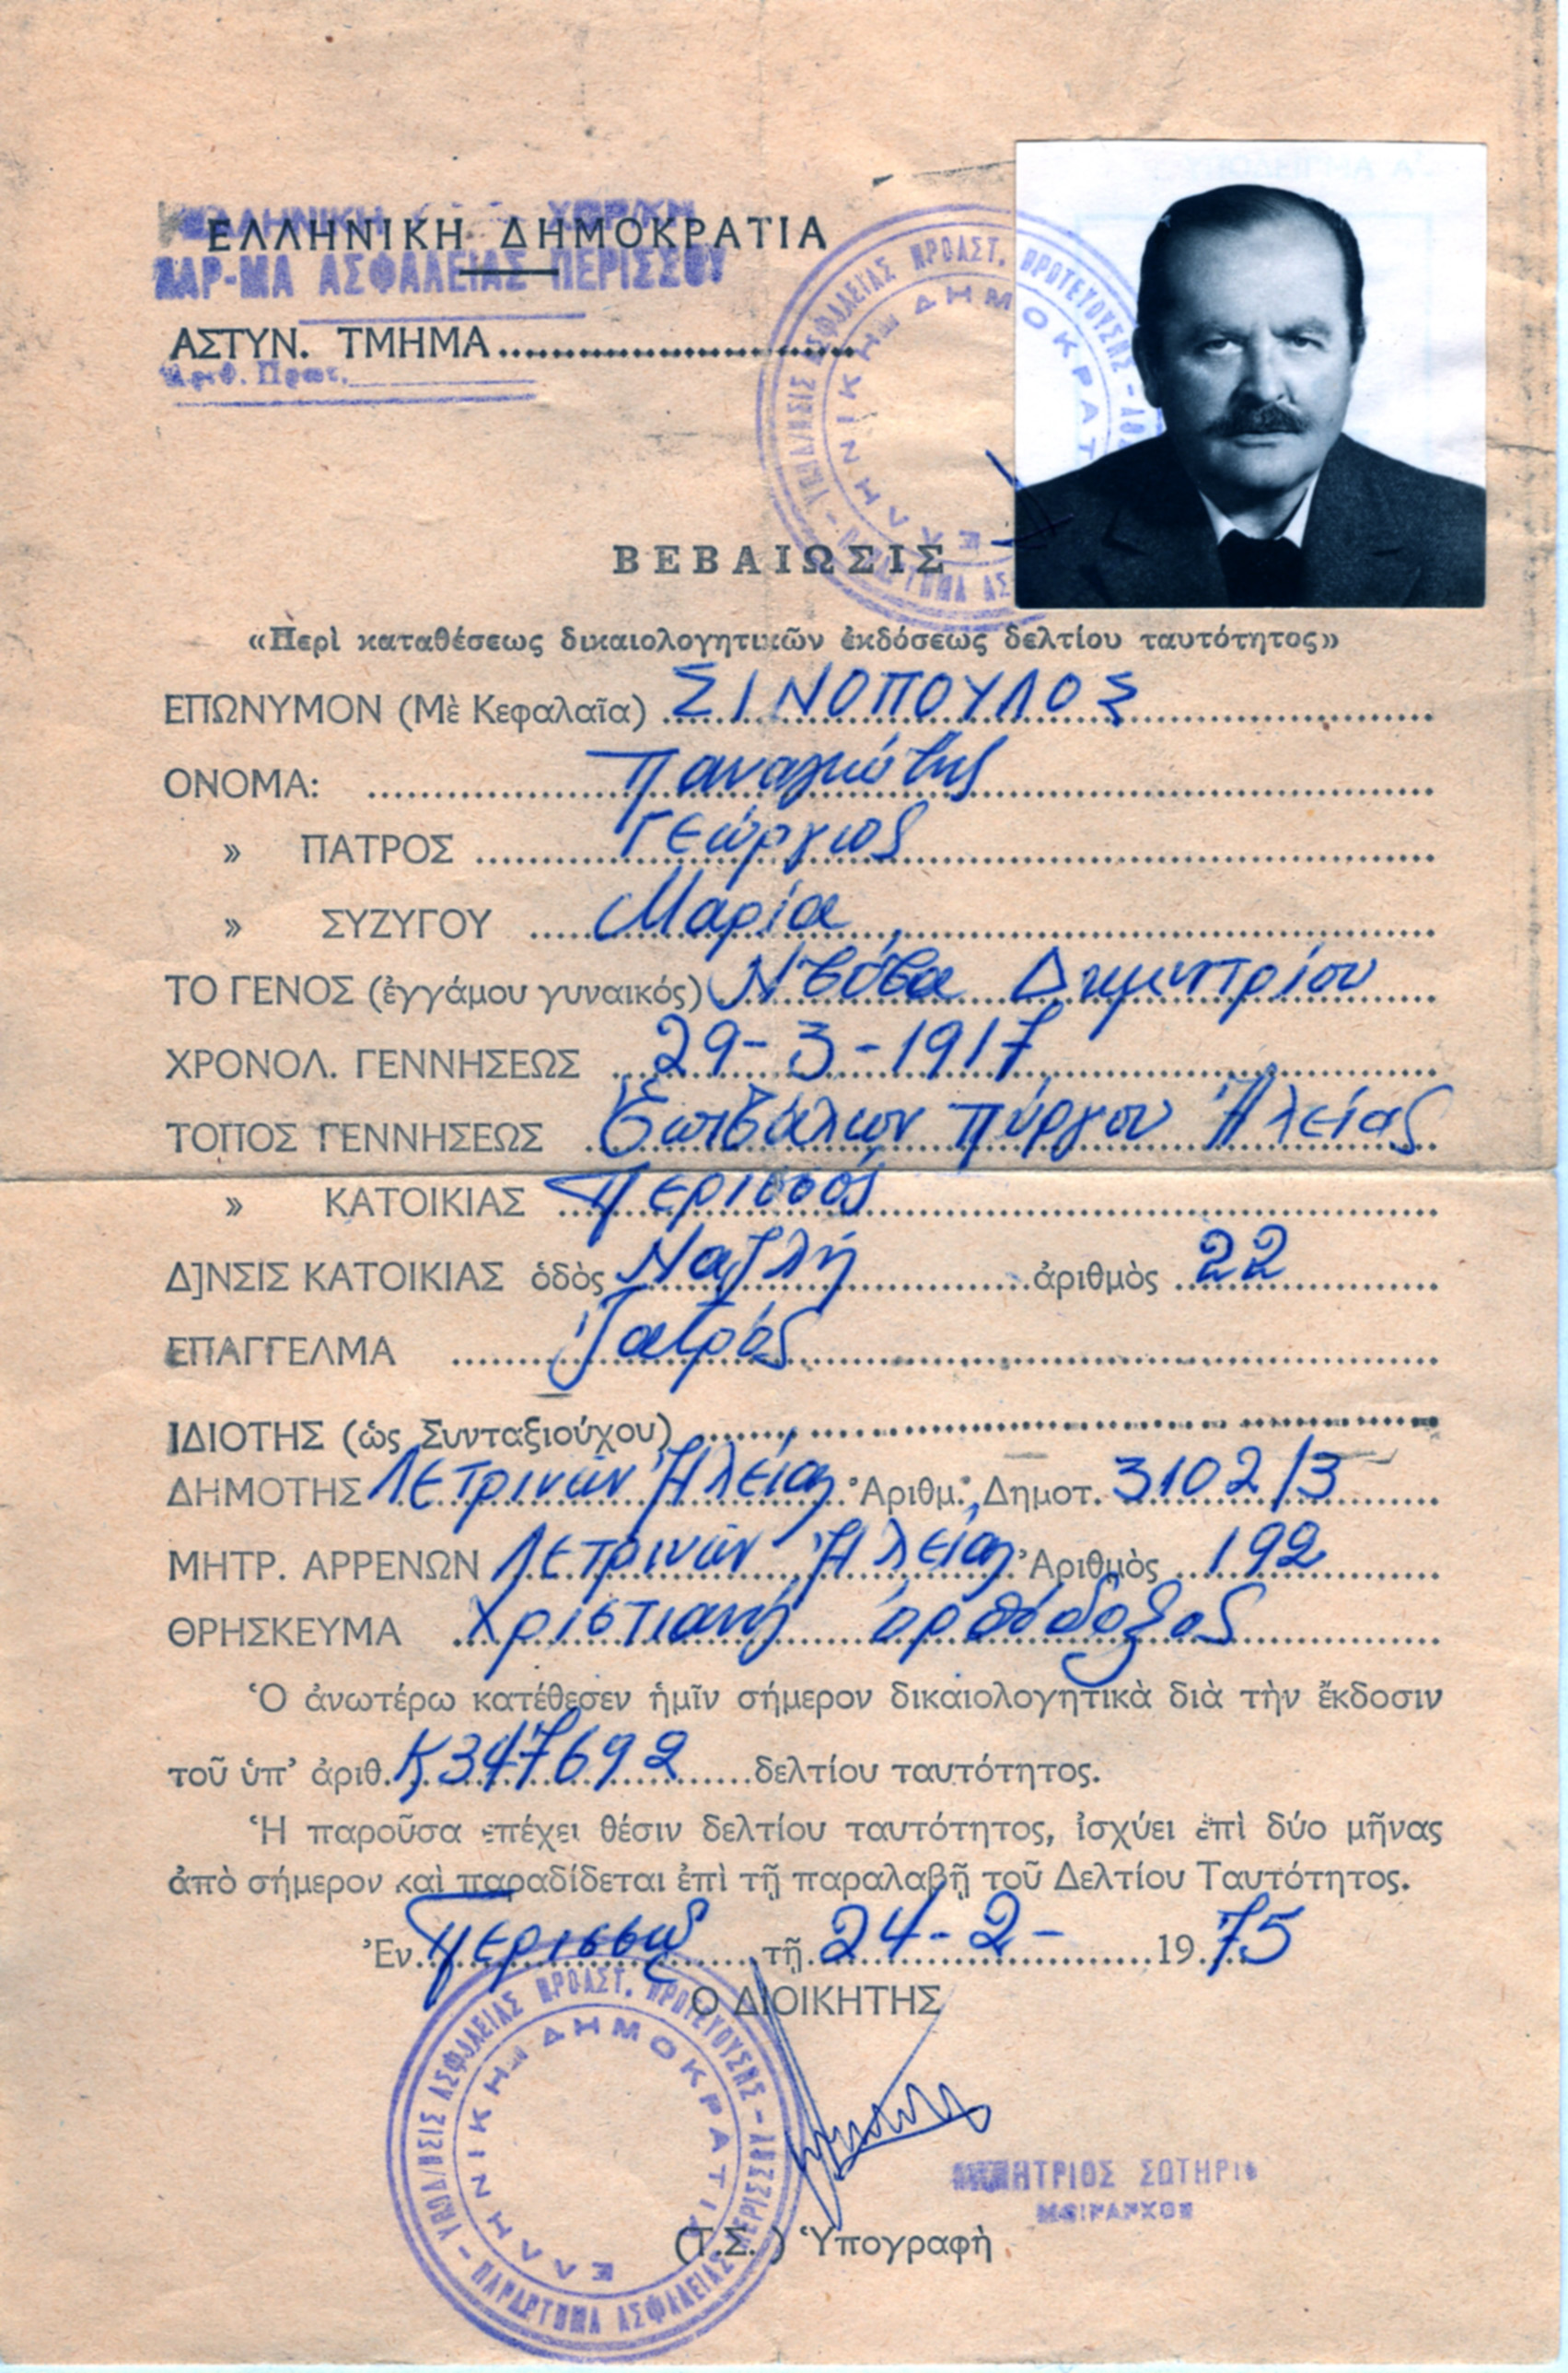 ΕΛΛΗΝΙΚΗ ΔΗΜΟΚΡΑΤΙΑ
ΠΑΡ-ΜΑ ΑΣΦΑΛΕΙΑΣ ΠΕΡΙΣΣΟΥ
ΑΣΤΥΝ. ΤΜΗΜΑ
Ἀριθ. Πρωτ.
ΒΕΒΑΙΩΣΙΣ
«Περὶ καταθέσεως δικαιολογητικῶν ἐκδόσεως δελτίου ταυτότητος»
ΕΠΩΝΥΜΟΝ (Μὲ Κεφαλαῖα) ΣΙΝΟΠΟΥΛΟΣ
ΟΝΟΜΑ: Παναγιώτης
» ΠΑΤΡΟΣ Γεώργιος
» ΣΥΖΥΓΟΥ Μαρία
ΤΟ ΓΕΝΟΣ (ἐγγάμου γυναικός) Ντότα Δημητρίου
ΧΡΟΝΟΛ. ΓΕΝΝΗΣΕΩΣ 29-3-1917
ΤΟΠΟΣ ΓΕΝΝΗΣΕΩΣ Πύργου Ἠλείας
» ΚΑΤΟΙΚΙΑΣ Περισσός
Δ]ΝΣΙΣ ΚΑΤΟΙΚΙΑΣ ὁδὸς Ναζλῆ ἀριθμὸς 22
ΕΠΑΓΓΕΛΜΑ Ἰατρός
ΙΔΙΟΤΗΣ (ὡς Συνταξιούχου)
ΔΗΜΟΤΗΣ Λετρινών Ἠλείας Ἀριθμ. Δημοτ. 3102/3
ΜΗΤΡ. ΑΡΡΕΝΩΝ Λετρινών Ἠλείας Ἀριθμὸς 192
ΘΡΗΣΚΕΥΜΑ Χριστιανὴ ὀρθόδοξος
Ὁ ἀνωτέρω κατέθεσεν ἡμῖν σήμερον δικαιολογητικὰ διὰ τὴν ἔκδοσιν
τοῦ ὑπ' ἀριθ. Κ347692 δελτίου ταυτότητος.
Ἡ παροῦσα ἐπέχει θέσιν δελτίου ταυτότητος, ἰσχύει ἐπὶ δύο μῆνας
ἀπὸ σήμερον καὶ παραδίδεται ἐπὶ τῇ παραλαβῇ τοῦ Δελτίου Ταυτότητος.
Ἐν Περισσῷ τῇ 24-2- 1975
Ο ΔΙΟΙΚΗΤΗΣ
ΥΠΟΔ/ΝΣΙΣ ΑΣΦΑΛΕΙΑΣ ΠΡΟΑΣΤ. ΠΡΩΤΕΥΟΥΣΗΣ - ΠΑΡΑΡΤΗΜΑ ΑΣΦΑΛΕΙΑΣ ΠΕΡΙΣΣΟΥ
ΕΛΛΗΝΙΚΗ ΔΗΜΟΚΡΑΤΙΑ
ΔΗΜΗΤΡΙΟΣ ΣΩΤΗΡΙΟ
ΜΟΙΡΑΡΧΟΣ
(Τ.Σ.) Ὑπογραφὴ